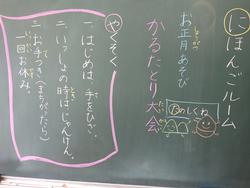 にほんごルーム
お正月あそび
かるたとり大会
たのしくね
やくそく
一、はじめは、手をひざ。
二、いっしょの時はじゃんけん。
三、お手つき(まちがったら)
一回お休み。